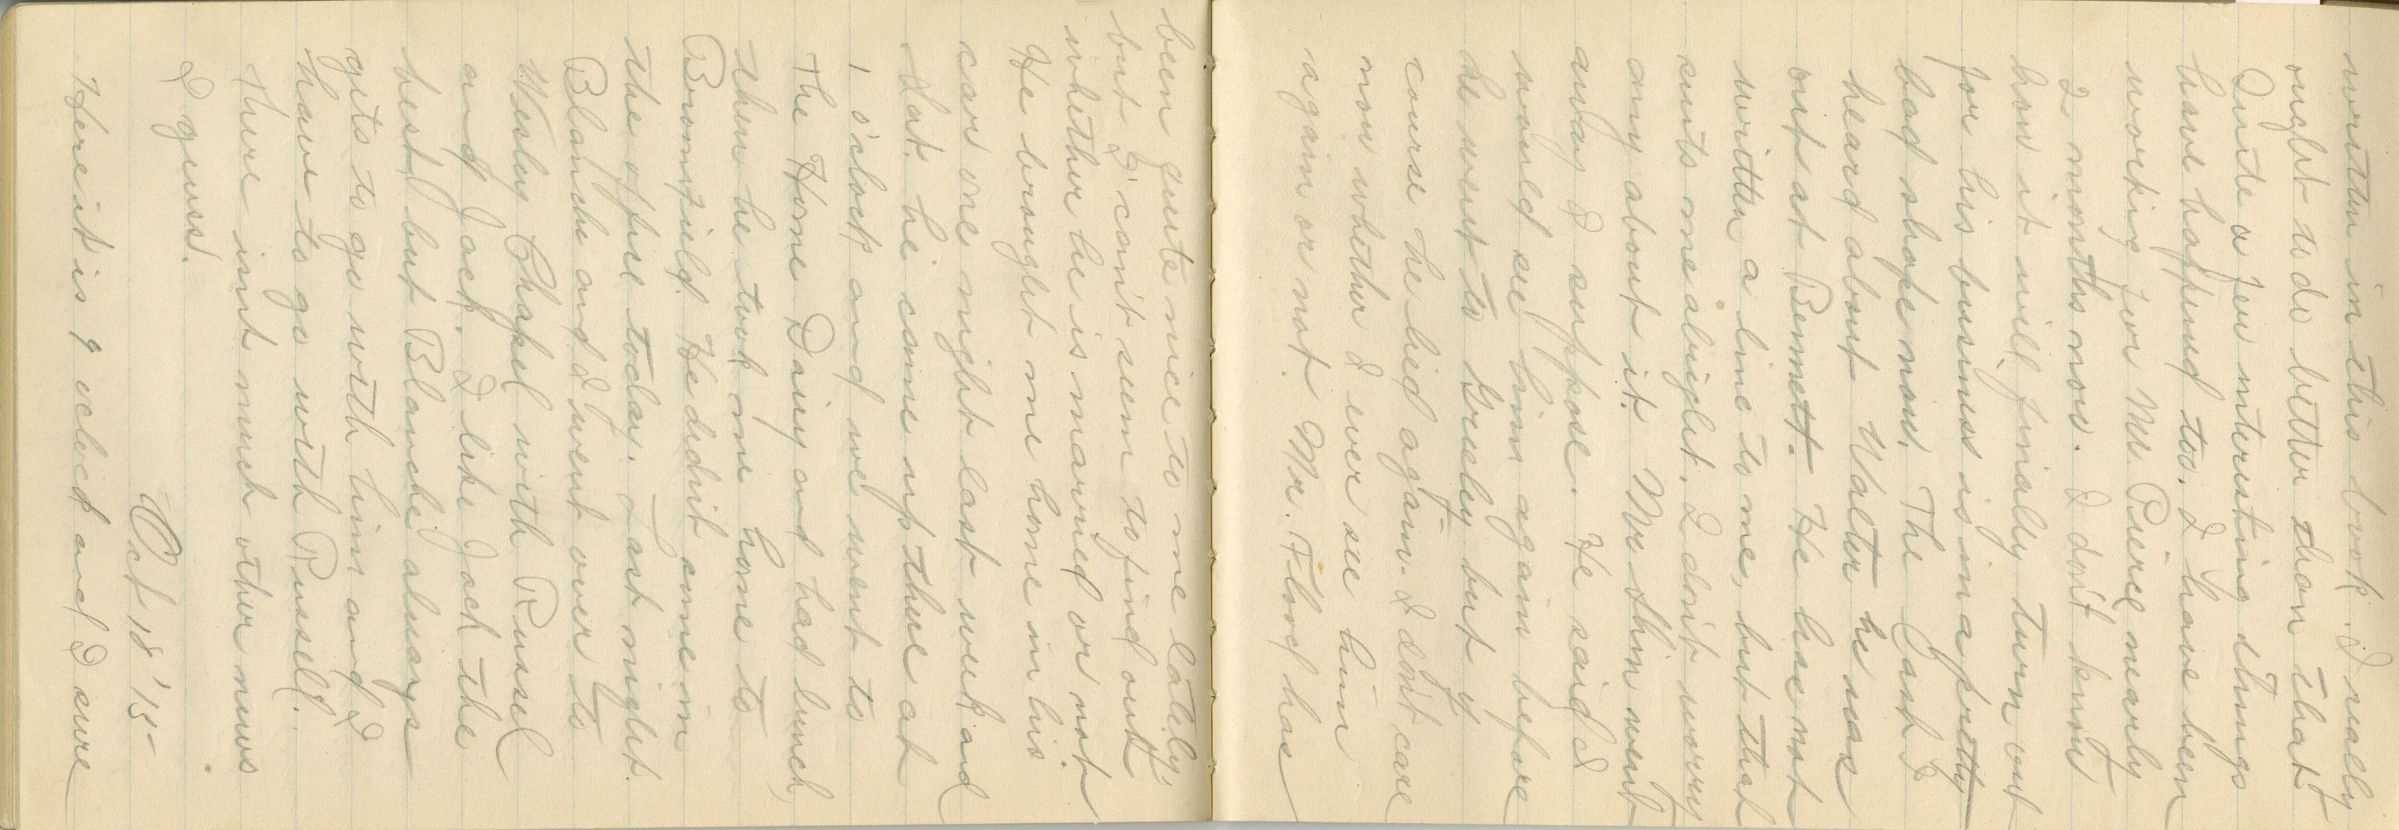 written in this book. I really
ought to do better than that
Quite a few interesting things
have happened too. I have been
working for Mr. Pierce nearly
2 months now. I don't know
how it will finially turn out
for his business is in a pretty
bad shape now. The last I
heard about Walter he was
out at Bennett. He has not
written a line to me, but that
suits me alright. I don't worry
any about it. Mr Shim went
away I suppose. He said I
would see him again before
he went to Greeley but of
course he lied again. I don't care
now whether I ever see him
again or not. Mr. Flood has
been quite nice to me lately,
but I can't seem to find out
whether he is married or not
He brought me home in his
car one night last week and
Sat. he came up there at
1 o'clock and we went to
the Home Dairy and had lunch,
then he took me home to
Bromfield. He didn't come in
the office today. Last night
Blanche and I went over to
Wesley Chapel with Russel
and Jack. I like Jack the
best, but Blanche always
gets to go with him and I
have to go with Russell.
There isnt much other news
I guess.
Oct 18 '15-
Here it is 9 oclock and I sure